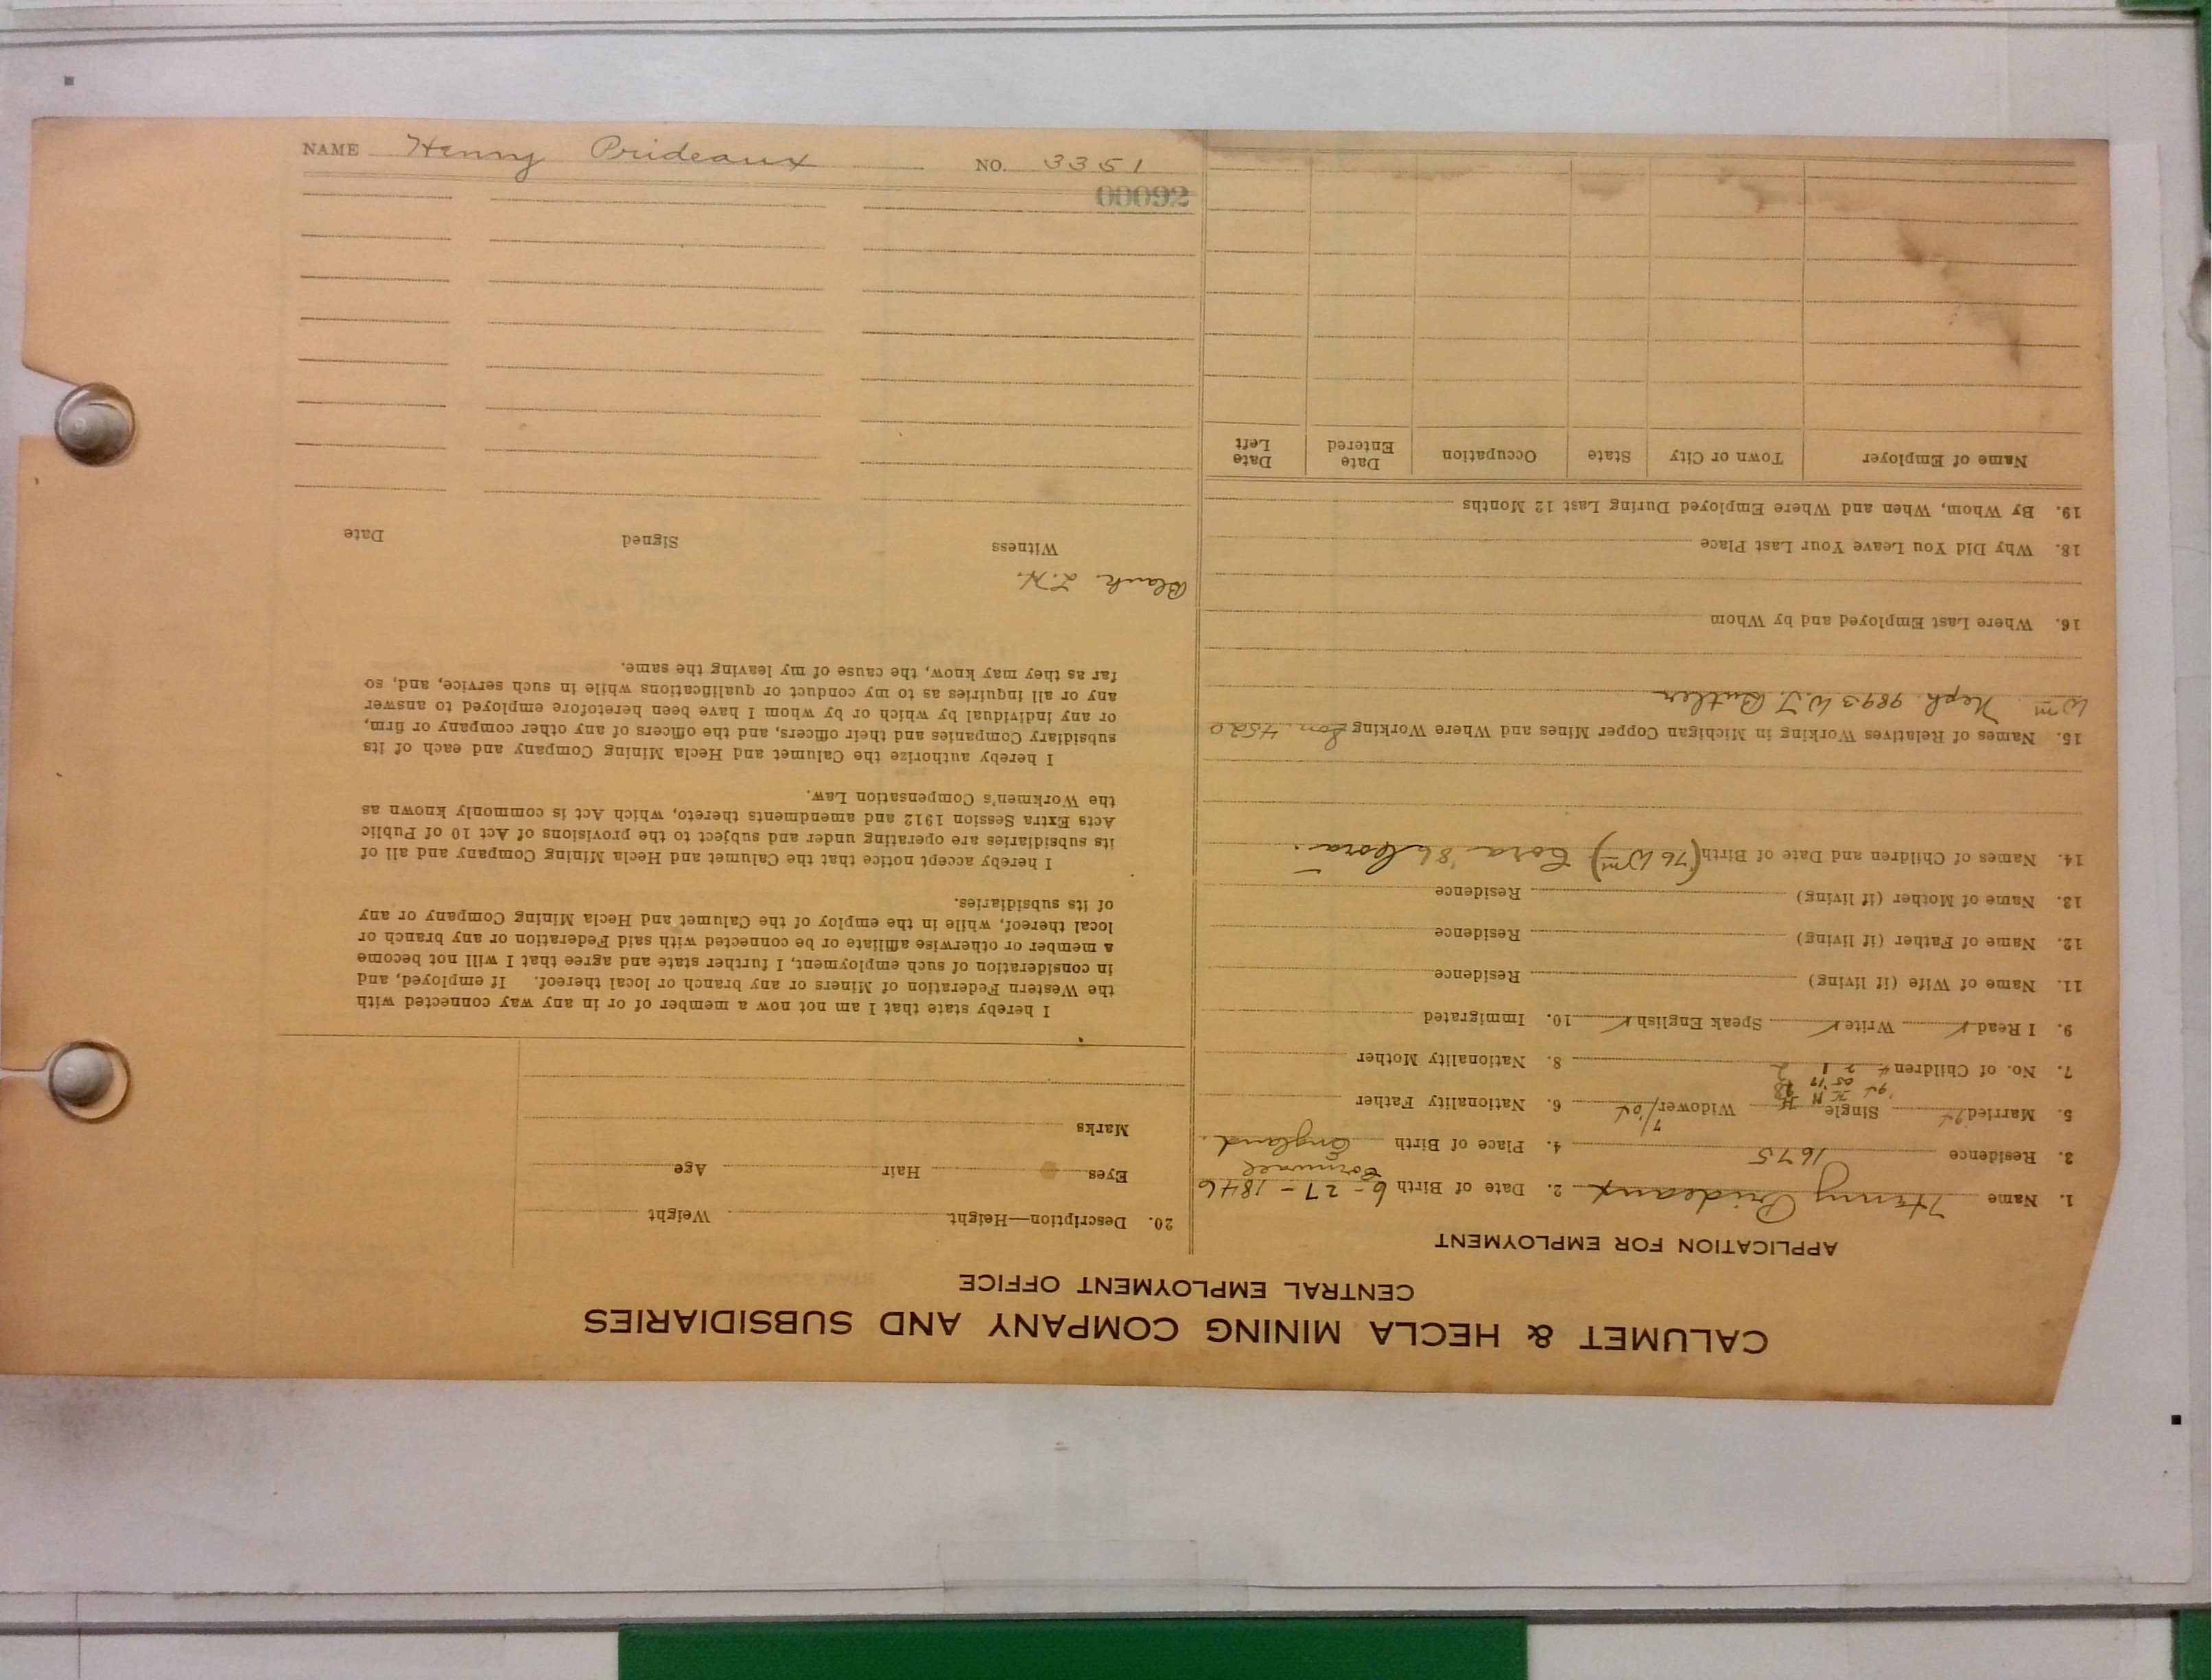 CALUMET & HECLA MINING COMPANY AND SUBSIDIARIES
CENTRAL EMPLOYMENT OFFICE
APPLICATION FOR EMPLOYMENT
1. Name Henry Prideaux 2. Date of Birth 6-27-1846
Cornwall
3. Residence 1675 4. Place of Birth England.
5. Married Single Widower 7/04 6. Nationality Father
7. No. of Children 8. Nationality Mother
9. I Read ✓ Write ✓ Speak English ✓ 10. Immigrated
11. Name of Wife (if living) Residence
12. Name of Father (if living) Residence
13. Name of Mother (if living) Residence
14. Names of Children and Date of Birth (76 Wm) Cora '86 Cora.
15. Names of Relatives Working in Michigan Copper Mines and Where Working Son 4520
Wm Neph. 9893 W.J. Butler
16. Where Last Employed and by Whom
18. Why Did You Leave Your Last Place
19. By Whom, When and Where Employed During Last 12 Months
Name of Employer Town or City State Occupation Date Entered Date Left
20. Description—Height Weight
Eyes Hair Age
Marks
I hereby state that I am not now a member of or in any way connected with
the Western Federation of Miners or any branch or local thereof. If employed, and
in consideration of such employment, I further state and agree that I will not become
a member or otherwise affiliate or be connected with said Federation or any branch or
local thereof, while in the employ of the Calumet and Hecla Mining Company or any
of its subsidiaries.
I hereby accept notice that the Calumet and Hecla Mining Company and all of
its subsidiaries are operating under and subject to the provisions of Act 10 of Public
Acts Extra Session 1912 and amendments thereto, which Act is commonly known as
the Workmen's Compensation Law.
I hereby authorize the Calumet and Hecla Mining Company and each of its
subsidiary Companies and their officers, and the officers of any other company or firm,
or any individual by which or by whom I have been heretofore employed to answer
any or all inquiries as to my conduct or qualifications while in such service, and, so
far as they may know, the cause of my leaving the same.
Blank I.H.
Witness Signed Date
00092
NAME Henry Prideaux NO. 3351